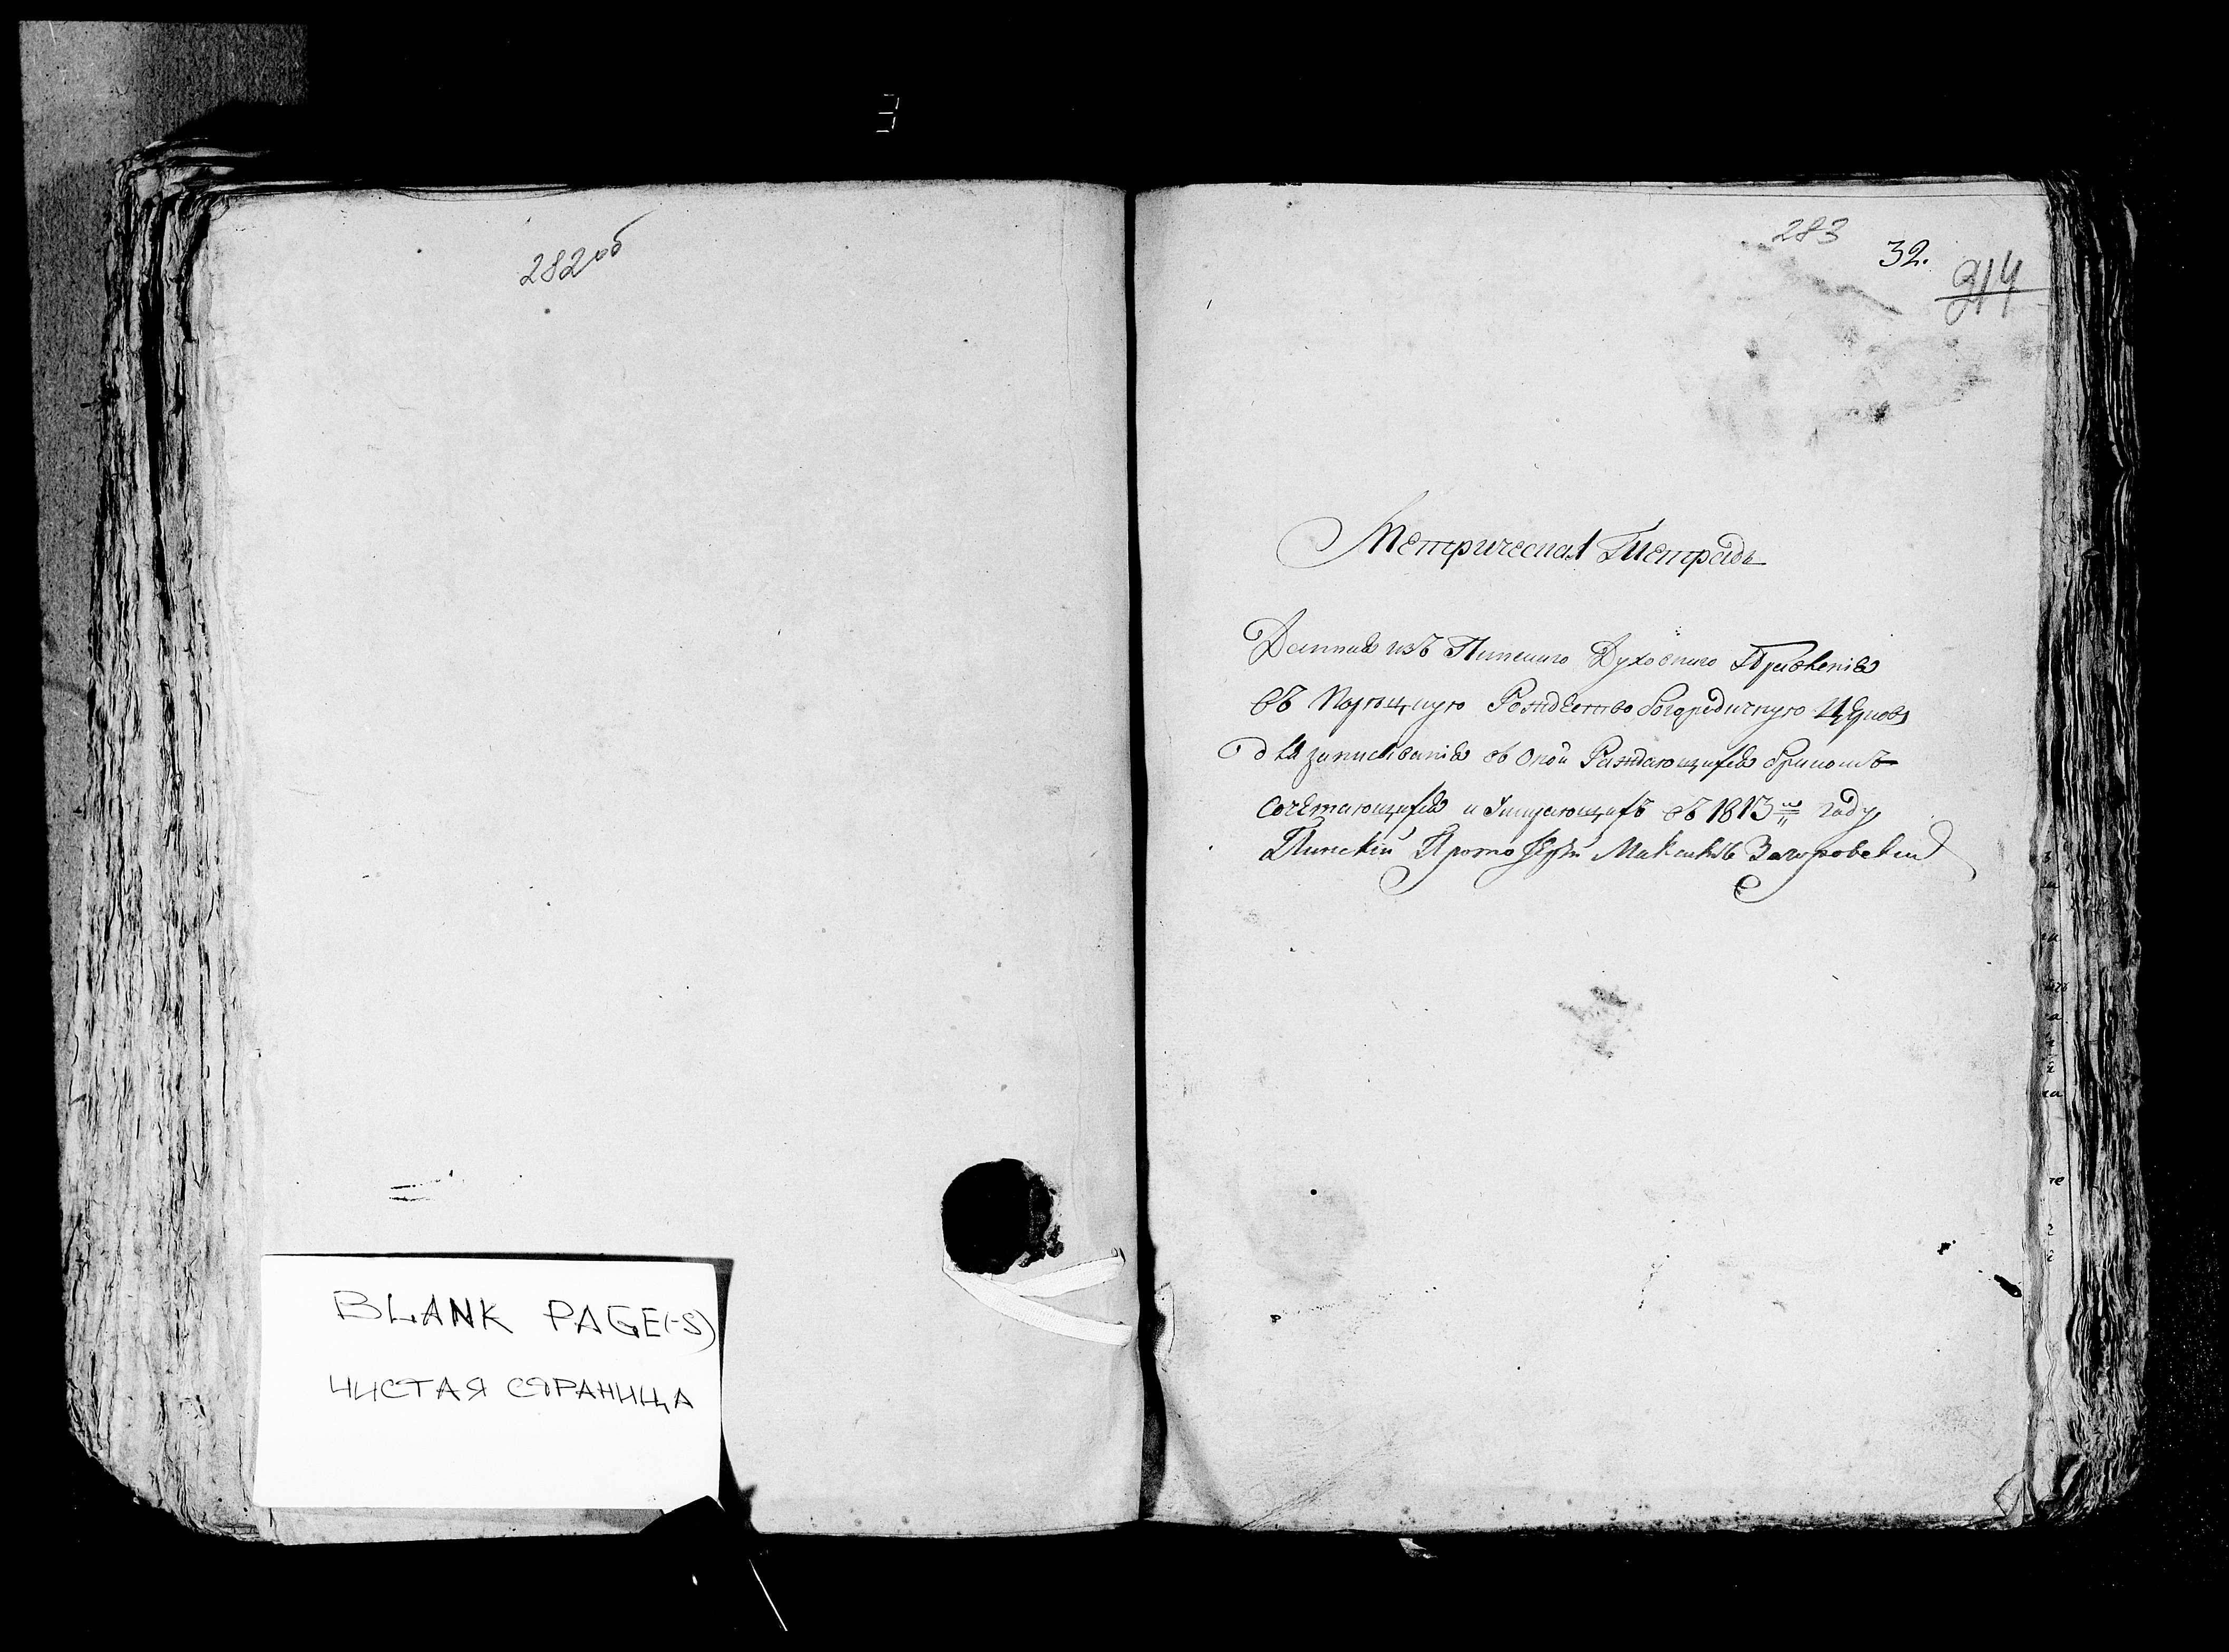 282 об
BLANK PAGE(-S)
ЧИСТАЯ СТРАНИЦА
283
32.
314
Метрическая Тетрадь
Данная изъ Пинскаго Духовнаго Правленія
въ Порѣцкую Рождество богородичную Церковь
для записыванія въ оной Раждающихся бракомъ
сочетающихся и Умирающихъ въ 1813м году
Пинскій Протоіерей Загоровскій